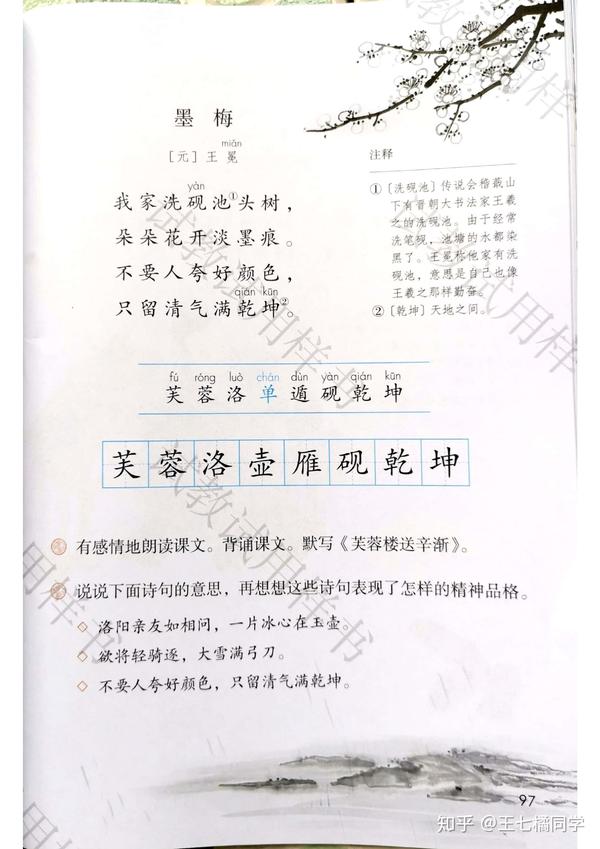 墨梅
miǎn
[元]王冕
yàn
我家洗砚池①头树，
朵朵花开淡墨痕。
不要人夸好颜色，
qián kūn
只留清气满乾坤②。
注释
①〔洗砚池〕传说会稽蕺山
下有晋朝大书法家王羲
之的洗砚池。由于经常
洗笔砚，池塘的水都染
黑了。王冕称他家有洗
砚池，意思是自己也像
王羲之那样勤奋。
②〔乾坤〕天地之间。
fú róng luò chán dùn yàn qián kūn
芙蓉洛单遁砚乾坤
芙蓉洛壶雁砚乾坤
有感情地朗读课文。背诵课文。默写《芙蓉楼送辛渐》。
说说下面诗句的意思，再想想这些诗句表现了怎样的精神品格。
◇ 洛阳亲友如相问，一片冰心在玉壶。
◇ 欲将轻骑逐，大雪满弓刀。
◇ 不要人夸好颜色，只留清气满乾坤。
97
知乎 @王七橘同学
试教试用样书
试教试用样书
试教试用样书
用样书
用样书